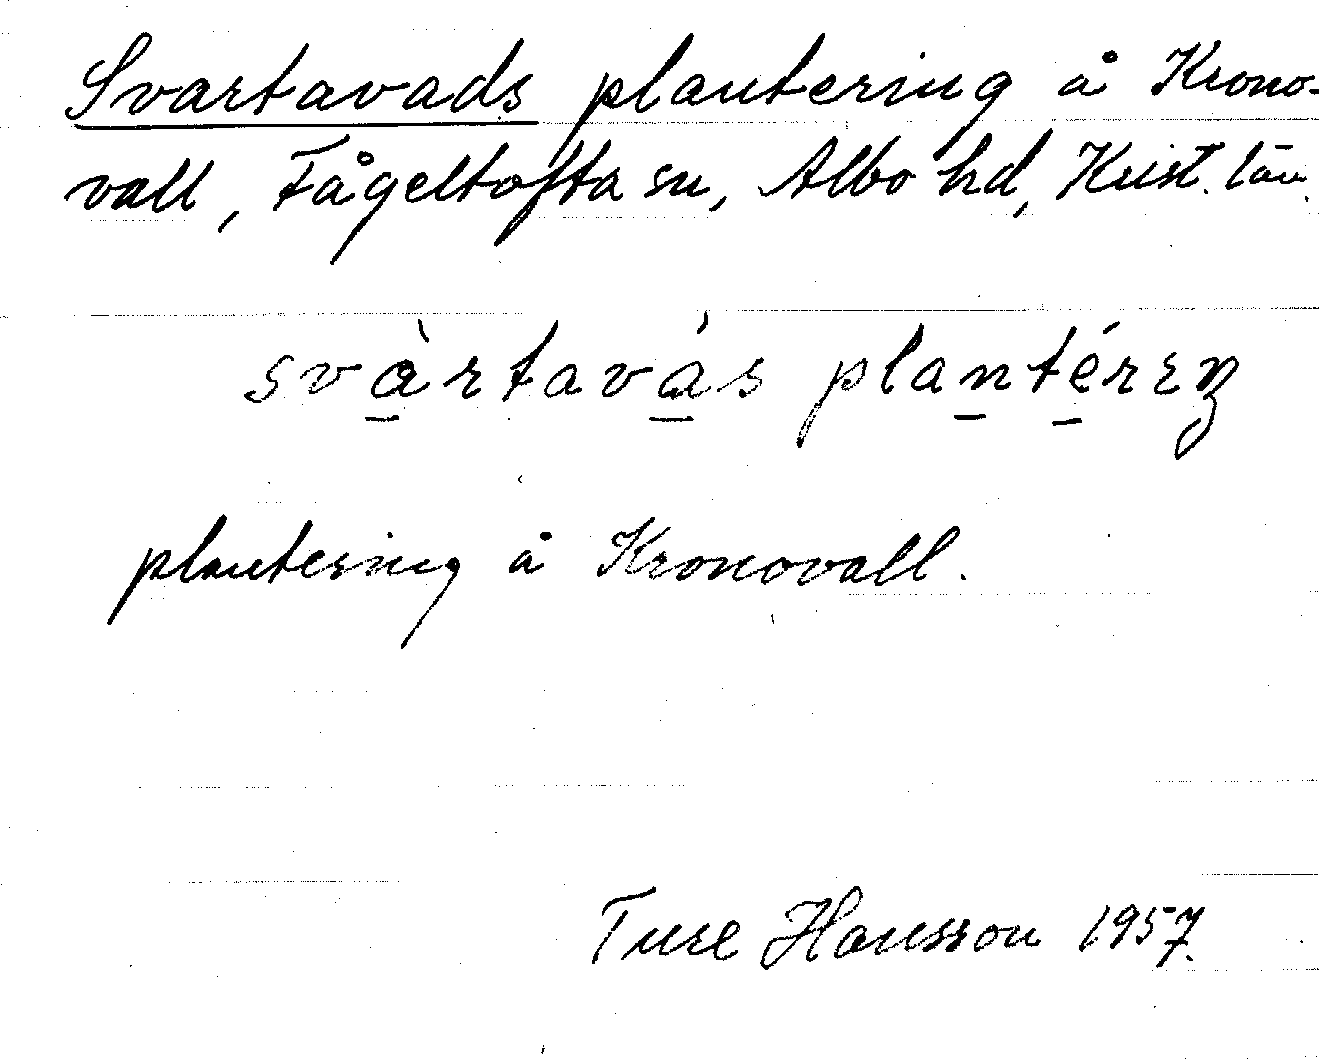 Svartavads plantering å Krono-
vall, Fågeltofta sn, Albo hd, Krist. län.
svàrtavás plantérɪŋ
plantering å Kronovall.
Ture Hansson 1957.